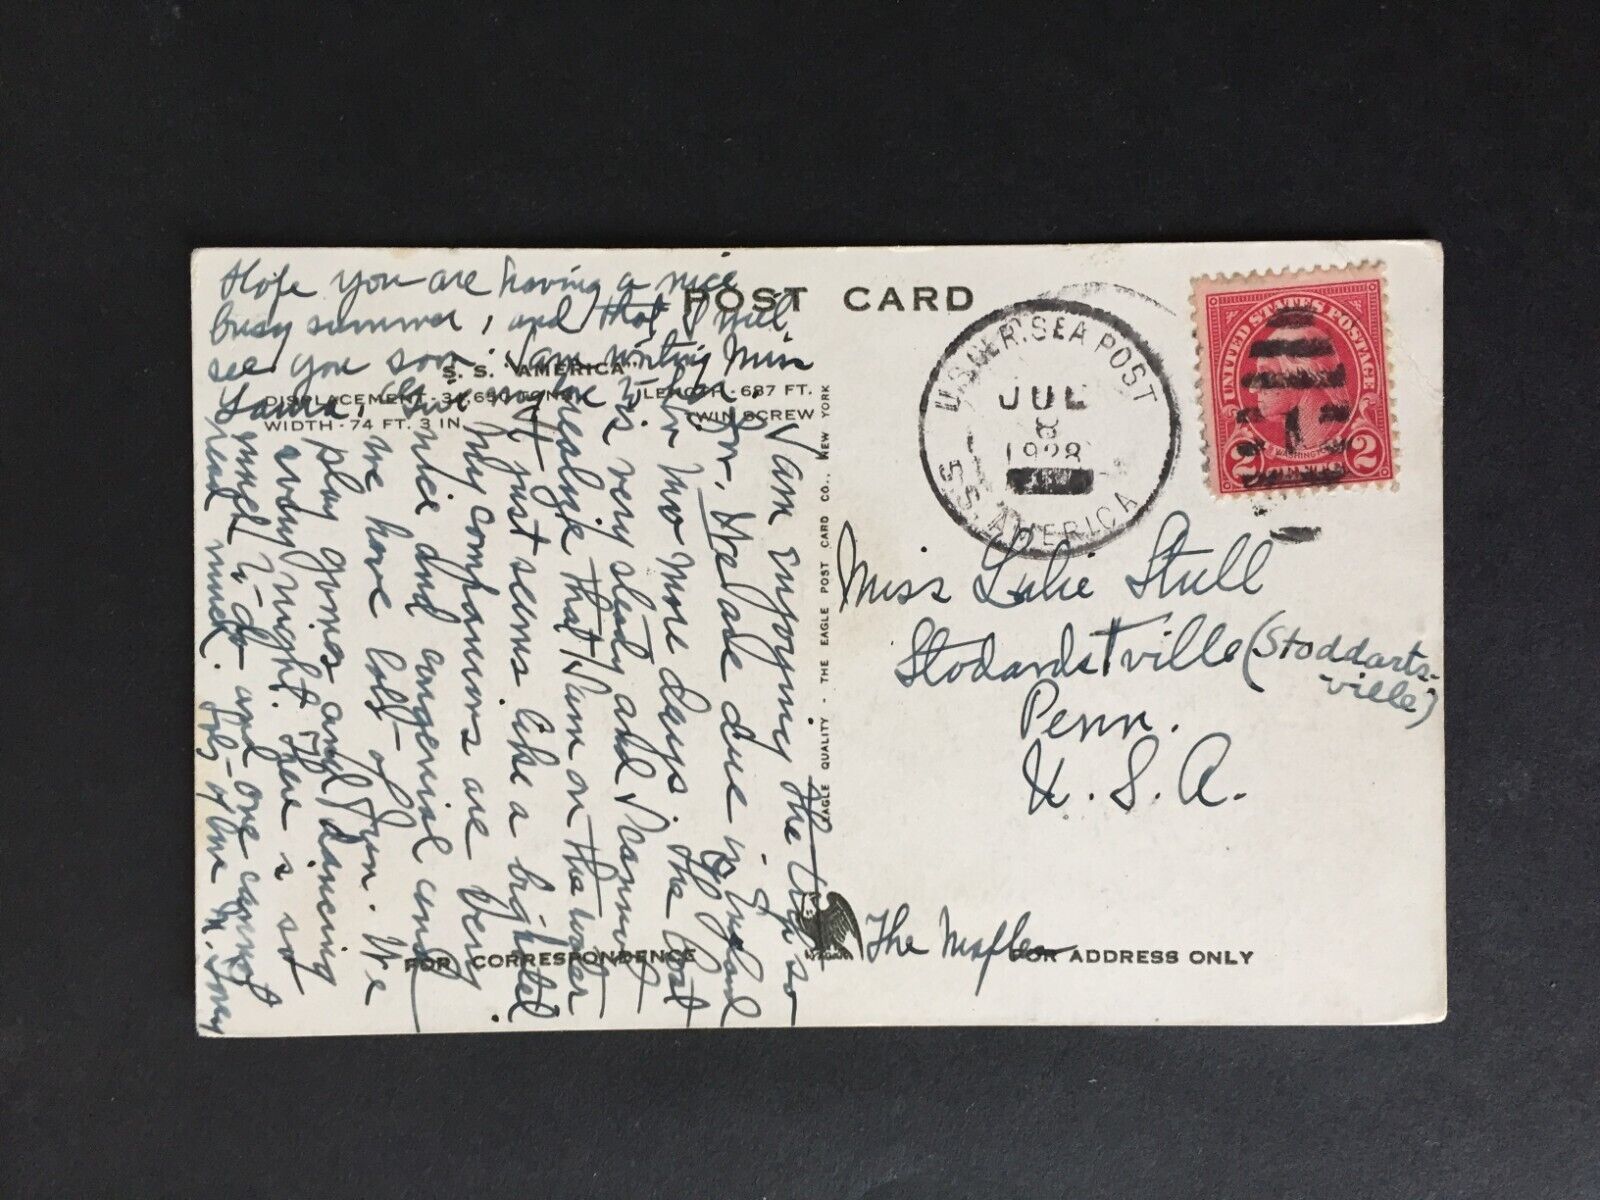 POST CARD
S. S. "AMERICA"
DISPLACEMENT - TONS LENGTH - 687 FT.
WIDTH - 74 FT. 3 IN. TWIN SCREW
I am enjoying the trip so
far. We are due in England
in two more days. The boat
is very steady and I cannot
realize that I am on the water
It just seems like a big hotel.
My companions are very
nice and congenial and
we have lots of fun. We
play games and dancing
every night. There is so
much to do and one cannot
read much.
Hope you are having a nice
busy summer, and that I will
see you soon. I am writing Miss
Laura, Give my love to
EAGLE QUALITY - THE EAGLE POST CARD CO., NEW YORK
U.S. GER. SEA POST
JUL
8
1928
S.S. AMERICA
UNITED STATES POSTAGE
2 WASHINGTON 2
Miss Stull
Stodardstville (Stoddarts-
-ville)
Penn.
U. S. A.
The Maples
FOR CORRESPONDENCE
FOR ADDRESS ONLY